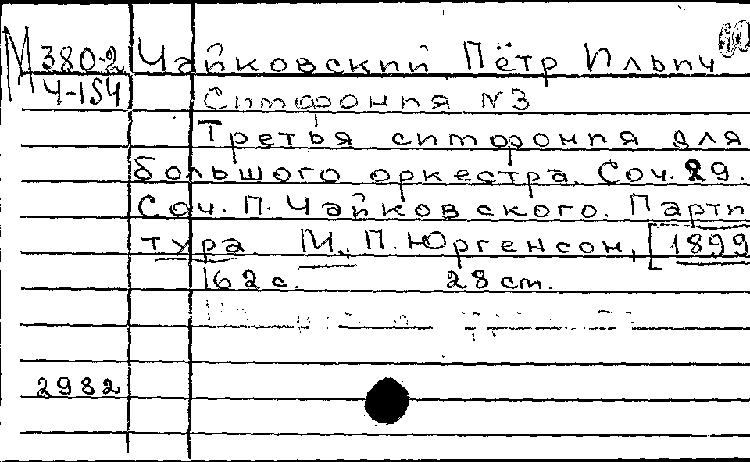 М 380-2 Чайковский Пётр Ильич
Ч-154 Симфония N3
Третья симфония для
большого оркестра. Соч. 29.
Соч. П. Чайковского. Парти
тура М., П. Юргенсон, [1899
162 с. 28 cm.
2982